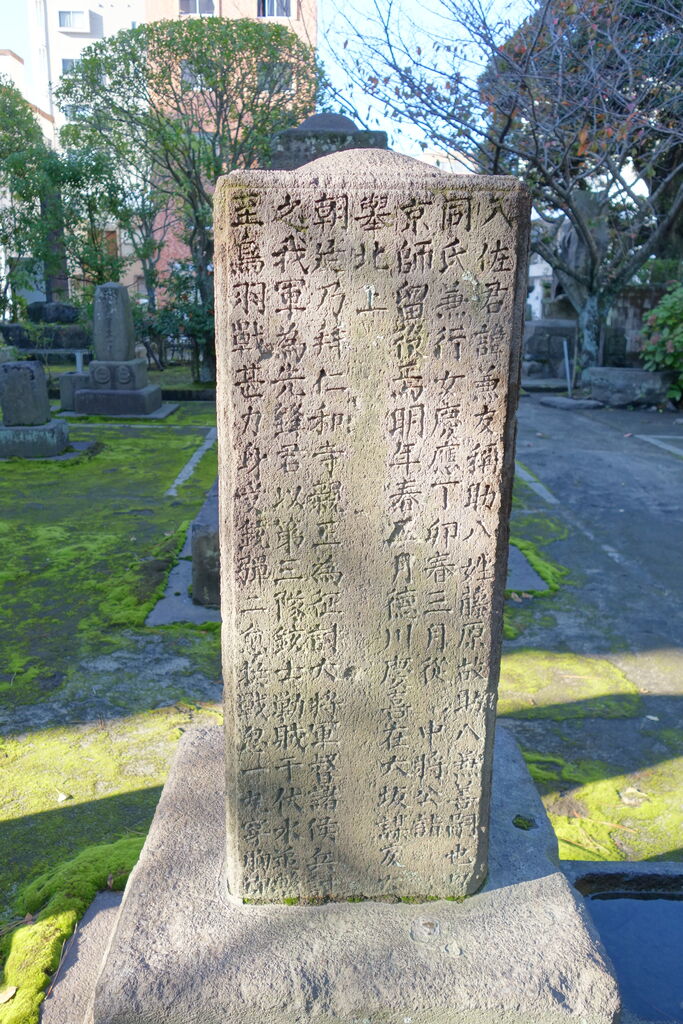 久佐君諱兼友稱助八姓藤原故助八兼善嗣也
同氏兼行女慶應丁卯春三月從 中將公詣
京師留後焉明年春正月德川慶喜在大坂謀反
擧兵北上
朝廷乃拜仁和寺親王為征討大將軍督諸侯兵討
之我軍為先鋒君以第三隊銃士勤戰于伏水
至鳥羽戰甚力身受銃彈二愈挑戰忽一丸穿胸